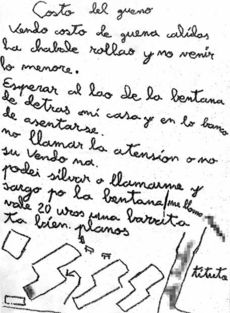 Costo del gueno
Vendo costo de guena calidas
ha chabale rollao y no venir
lo menore.
Esperar al lao de la bentana
de detras mi casa y en lo banco
de asentarse.
no llamar la atensión o no
su vendo na.
podei silvar o llamarme y
sargo po la bentana/me llamo
vale 20 uros una barrita
ta bien. planos